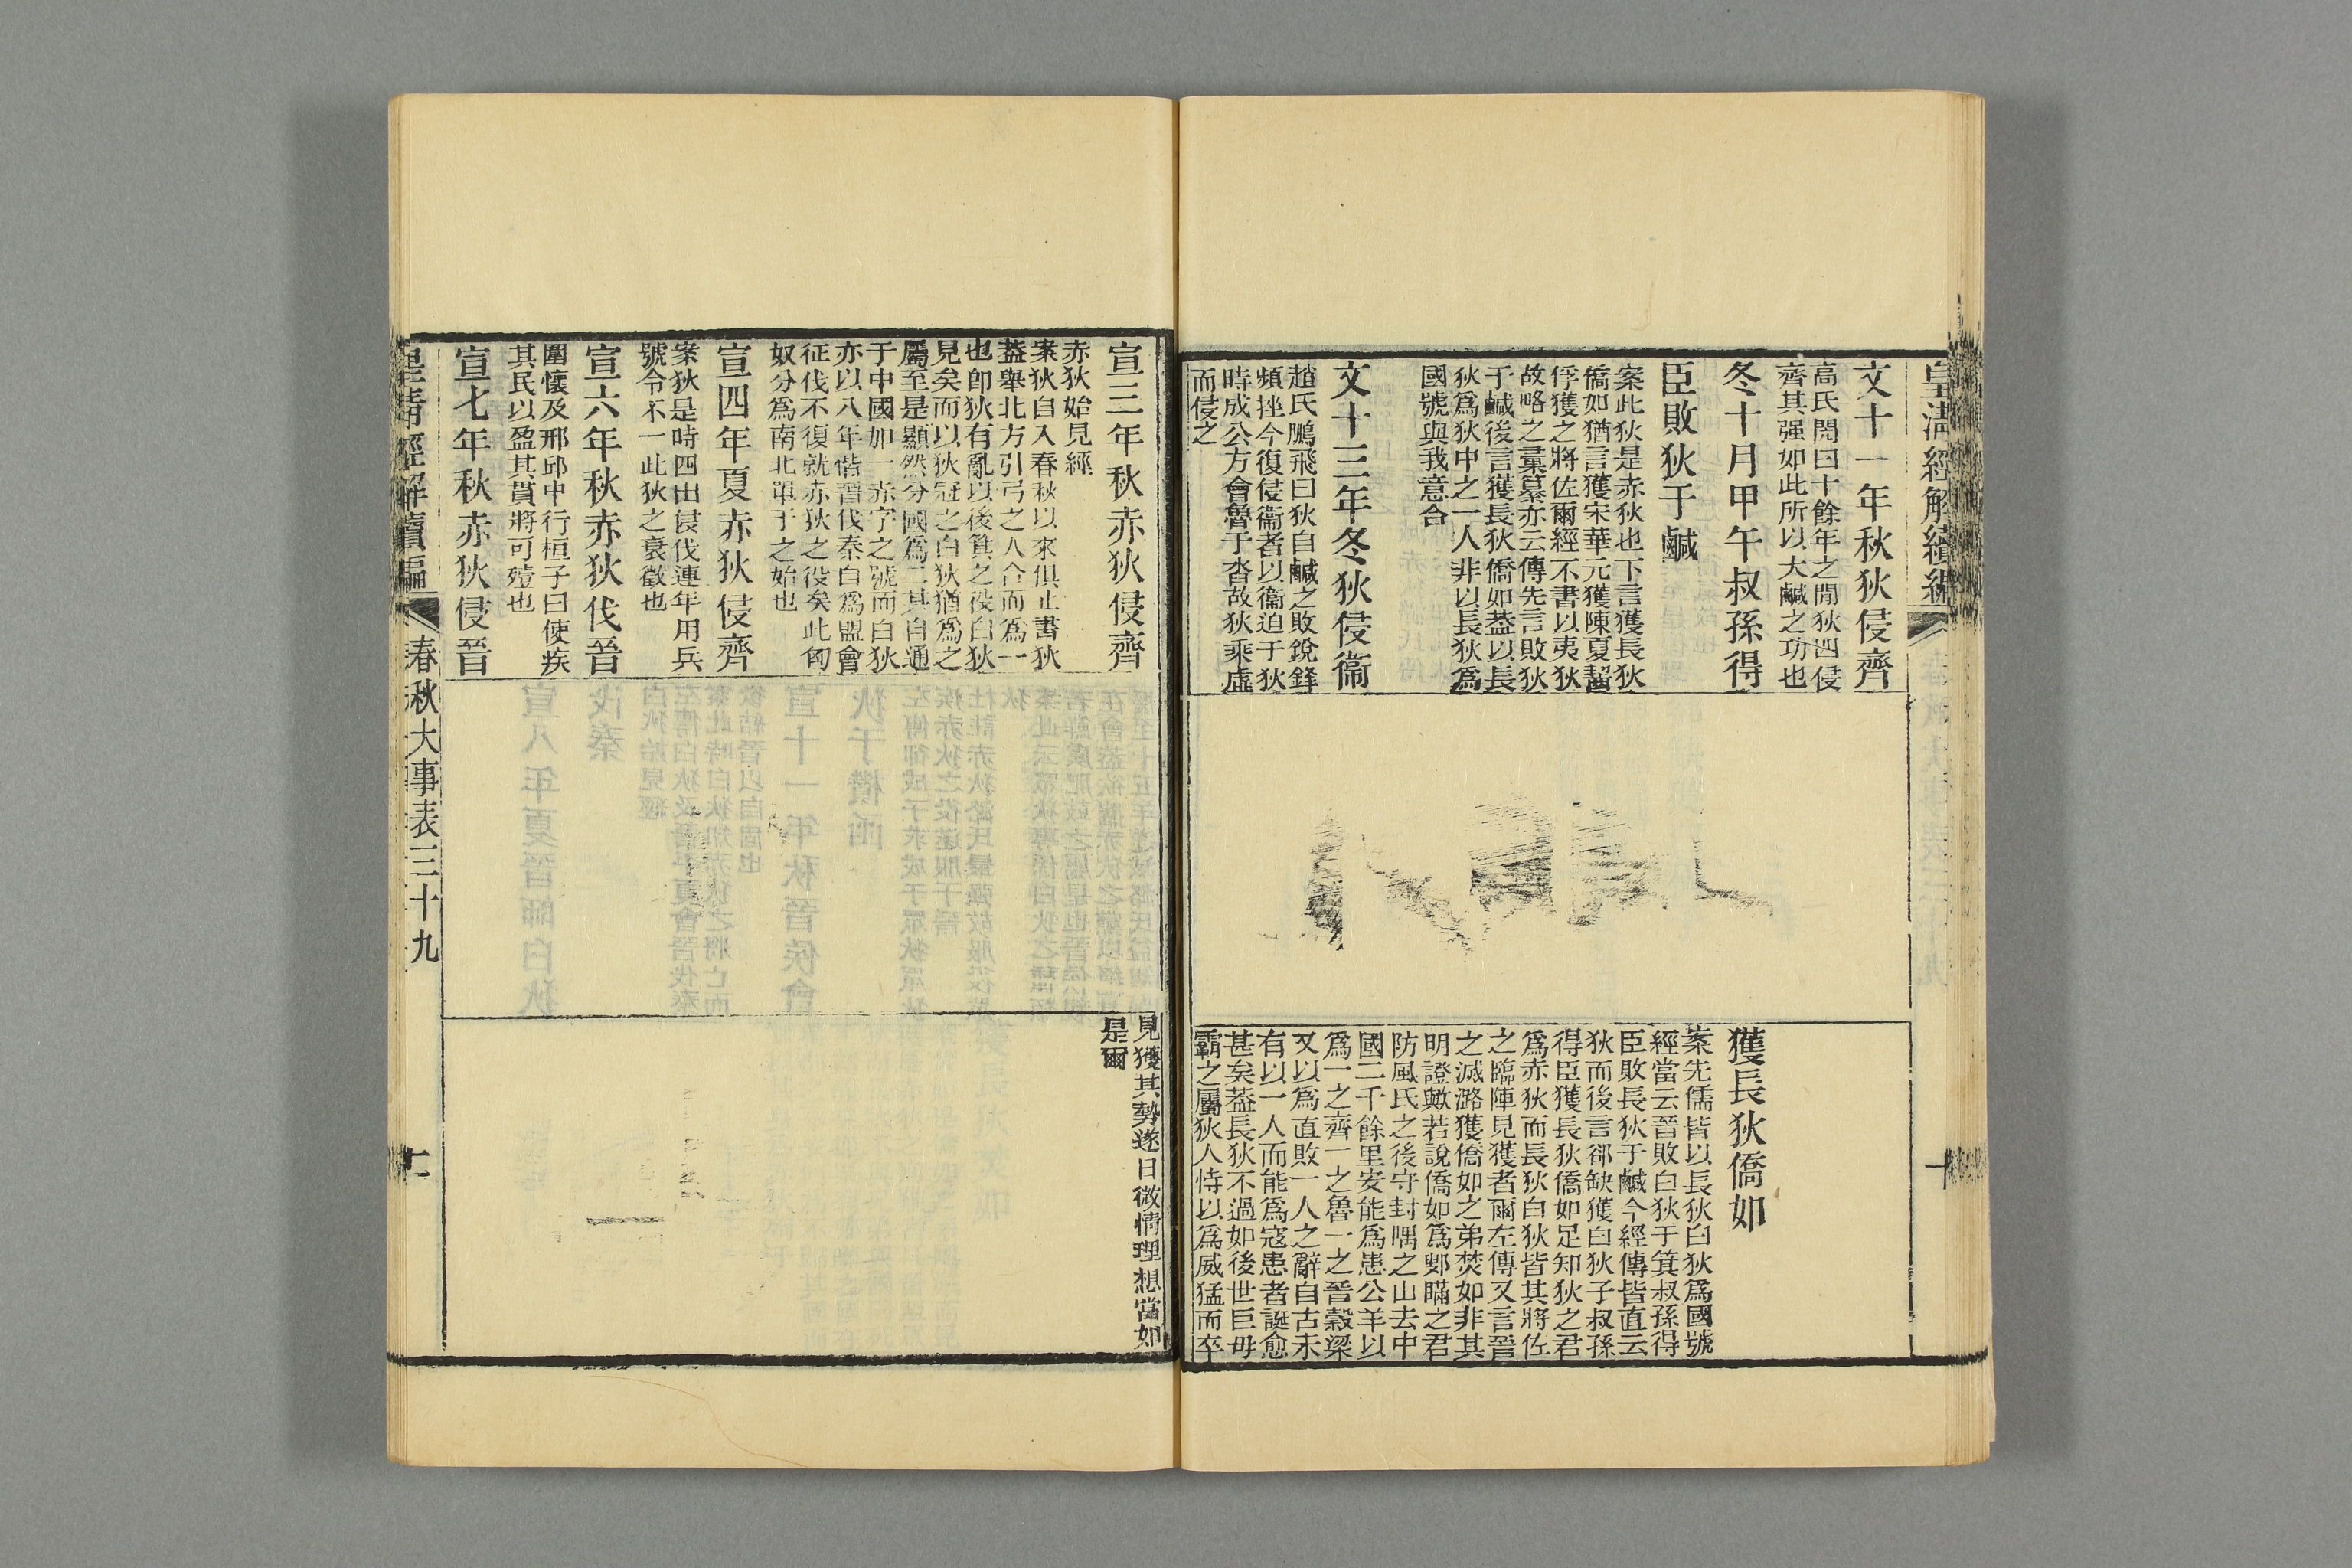 皇清經解續編
十
文十一年秋狄侵齊
高氏閌曰十餘年之閒狄四侵
齊其强如此所以大鹹之功也
冬十月甲午叔孫得
臣敗狄于鹹
案此狄是赤狄也下言獲長狄
僑如猶言獲宋華元獲陳夏齧
俘獲之將佐爾經不書以夷狄
故略之彙纂亦云傳先言敗狄
于鹹後言獲長狄僑如葢以長
狄爲狄中之一人非以長狄爲
國號與我意合
文十三年冬狄侵衞
趙氏鵬飛曰狄自鹹之敗銳鋒
頻挫今復侵衞者以衞迫于狄
時成公方會魯于沓故狄乘虛
而侵之
獲長狄僑如
案先儒皆以長狄白狄爲國號
經當云晉敗白狄于箕叔孫得
臣敗長狄于鹹今經傳皆直云
狄而後言郤缺獲白狄子叔孫
得臣獲長狄僑如足知狄之君
爲赤狄而長狄白狄皆其將佐
之臨陣見獲者爾左傳又言晉
之滅潞獲僑如之弟焚如非其
明證歟若說僑如爲鄋瞞之君
防風氏之後守封嵎之山去中
國二千餘里安能爲患公羊以
爲一之齊一之魯一之晉穀梁
又以爲直敗一人之辭自古未
有以一人而能爲寇患者誕愈
甚矣葢長狄不過如後世巨毋
霸之屬狄人恃以爲威猛而卒
宣三年秋赤狄侵齊
赤狄始見經
案狄自入春秋以來俱止書狄
葢舉北方引弓之人合而爲一
也卽狄有亂以後箕之役白狄
見矣而以狄冠之白狄猶爲之
屬至是顯然分國爲二其自通
于中國如一赤字之號而白狄
亦以八年偕晉伐秦白爲盟會
征伐不復就赤狄之役矣此匈
奴分爲南北單于之始也
宣四年夏赤狄侵齊
案狄是時四出侵伐連年用兵
號令不一此狄之衰徵也
宣六年秋赤狄伐晉
圍懷及邢邱中行桓子曰使疾
其民以盈其貫將可殪也
宣七年秋赤狄侵晉
見獲其勢遂日微情理想當如
是爾
皇清經解續編
春秋大事表三十九